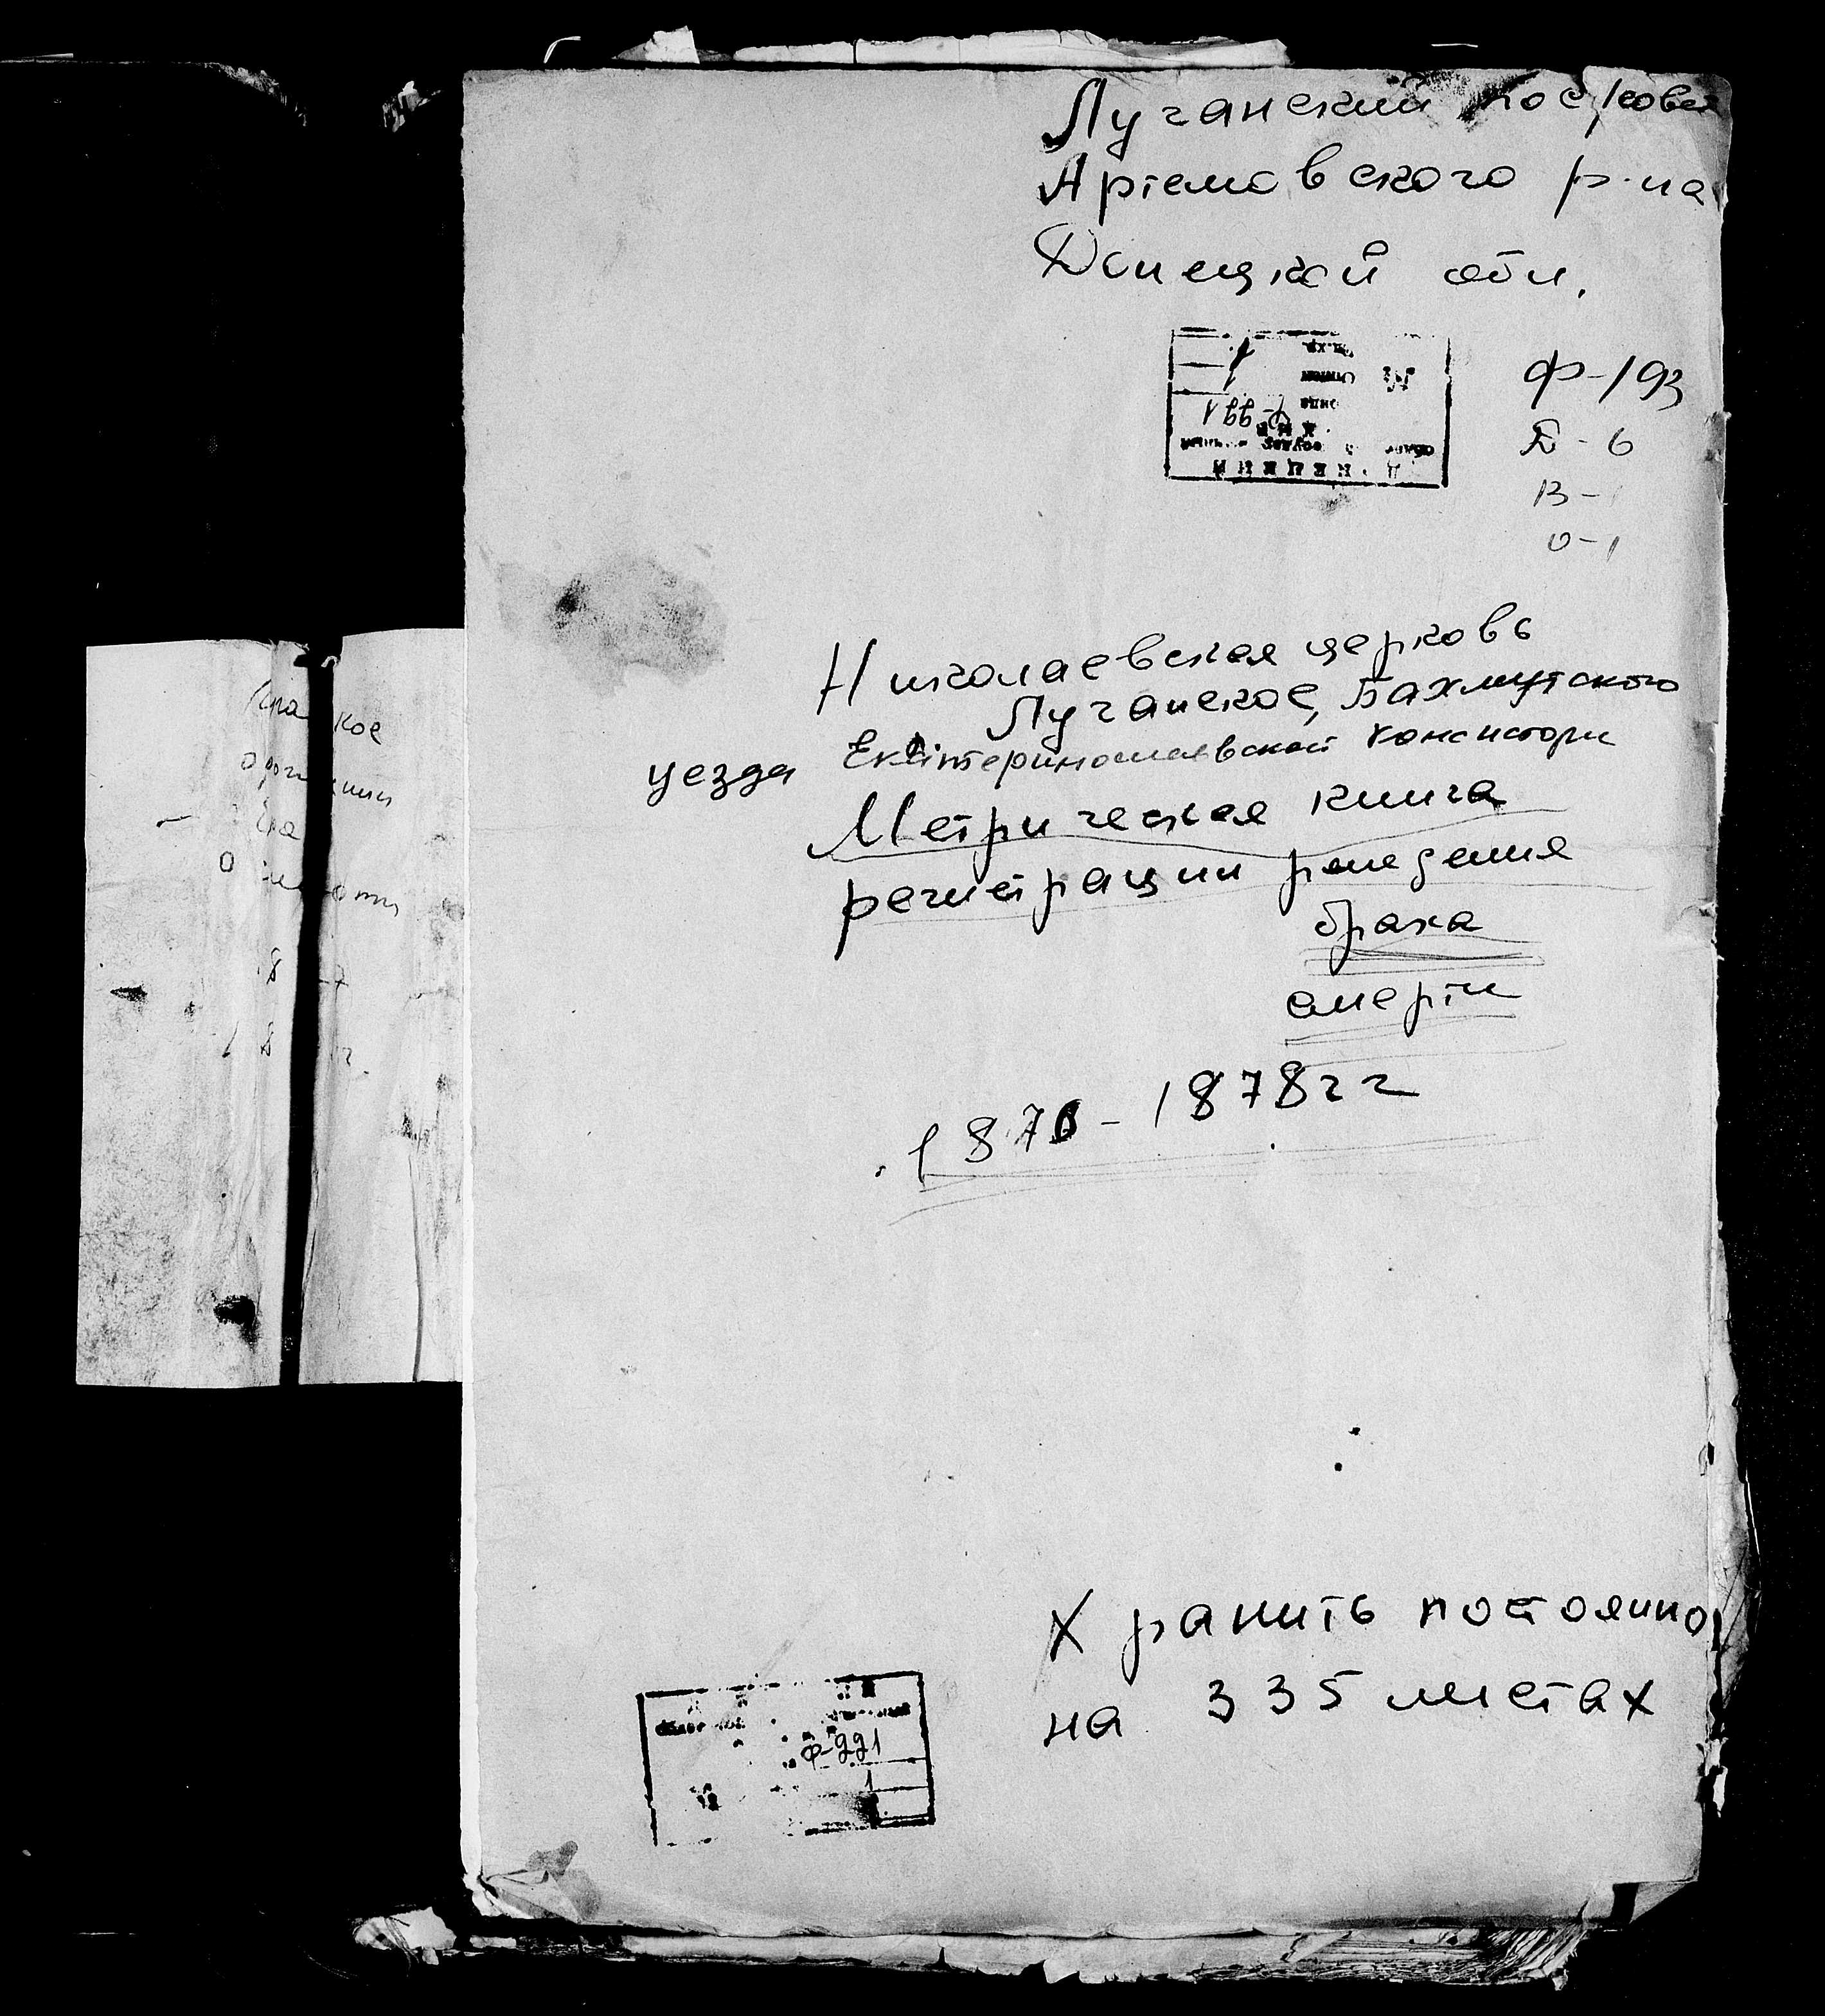 Луганский пос/совет
Артемовского р-на
Донецкой обл.
Ф-193
Д-6
В-1
О-1
Николаевская церковь
Луганское, Бахмутского
уезда Екатеринославской консистори
Метрическая книга
регистрации рождения
брака
смерти
1876-1878гг
Хранить постоянно
на 335 листах
Ф-221
1